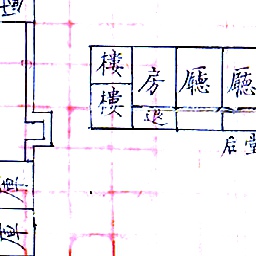 樓
樓
房
退
廳
廳
后堂
庫
庫